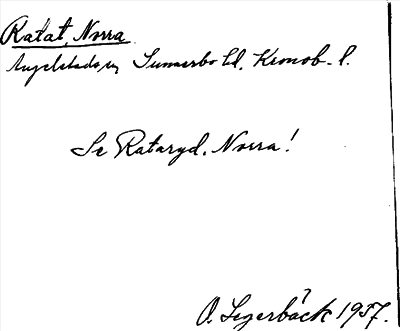 Ratat, Norra
Angelstads sn, Sunnerbo hd, Kronob. l.
Se Rataryd, Norra!
O. Segerbäck 1937.